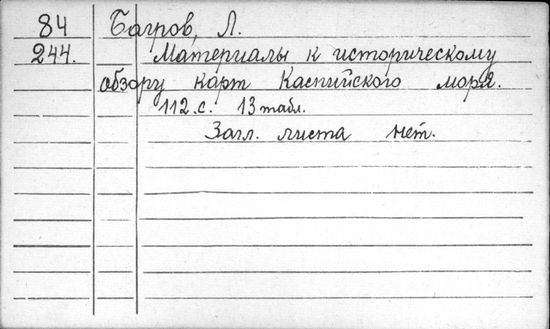 84 Багров, Л.
244. Материалы к историческому
обзору карт Каспийского моря.
112 с. 13 табл.
Загл. листа нет.